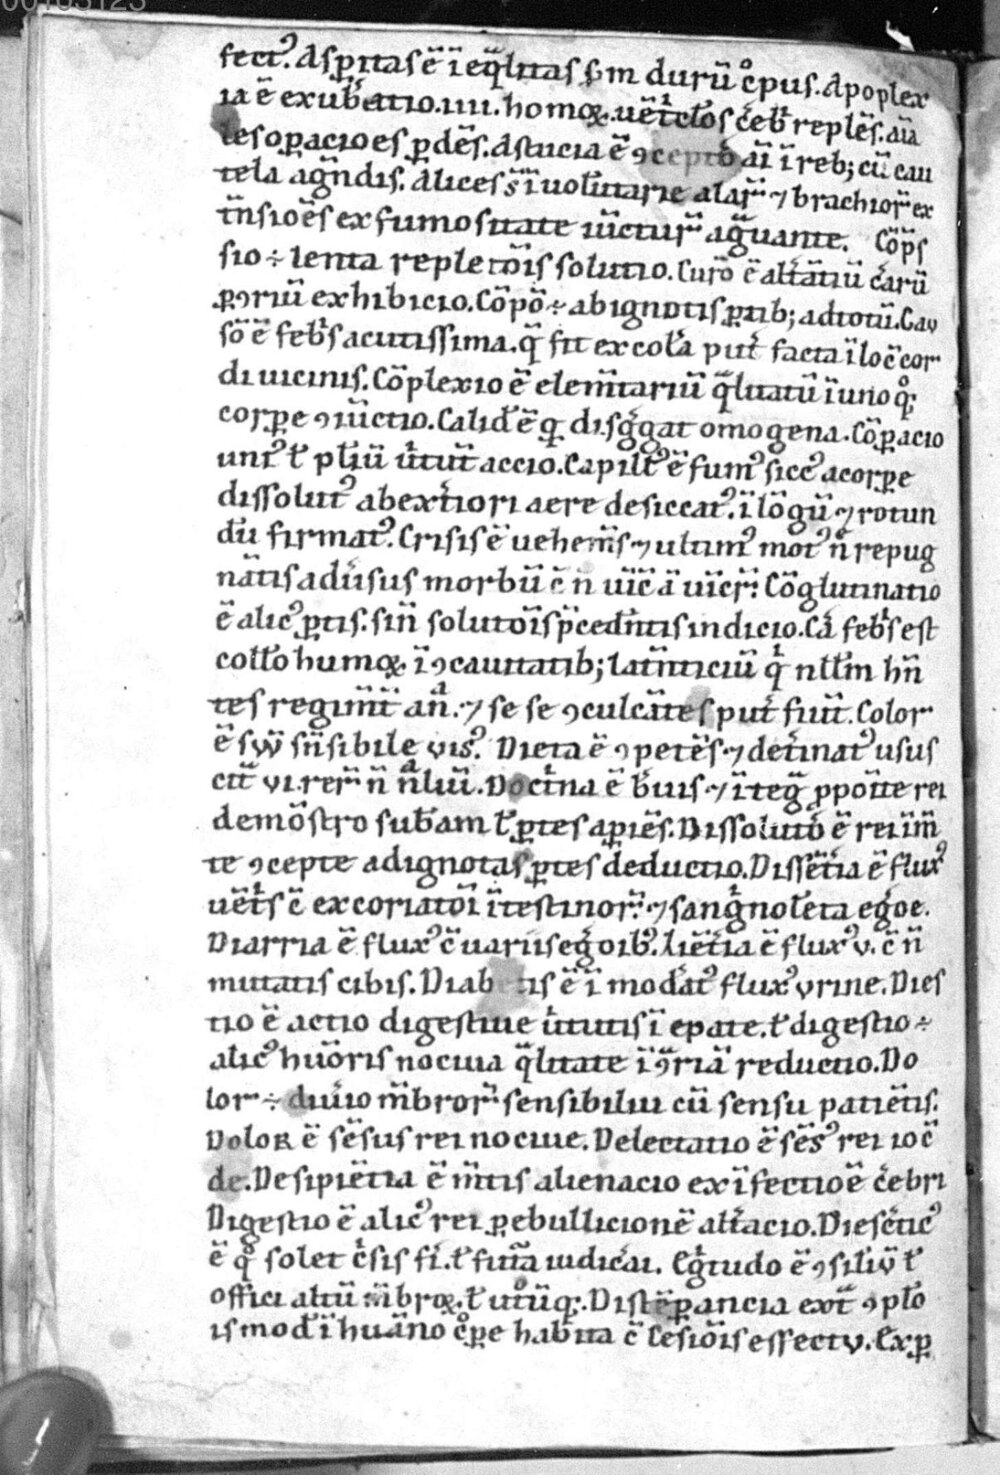 00105123
fect᾽. Aspitas ē ī eq̄litas ẜm durū c̊pus. Apoplex
ia ē exub̄atio .iiii. homoꝝ. uēt͛clos c̄eb͛ replēs. aīa
les opacio es ꝑdēs. Astucia ē ꝯceptō aī ī reb; cū cau
tela agn̄dis. Alices s̄ īuolūtarie alaꝝ ⁊ brachioꝝ ex
tn̄sioēs ex fumositate iūctuꝝ ag̃uante. Cōp̄s
sio ÷ lenta repletōis solutio. Curō ē alt͛atiū c͛arū
ꝑꝯriū exhibicio. Cōpō ÷ ab ignotis ꝑtib; ad totū. Cau
sō ē feb͛s acutissima. q̄ fit ex col͛a put͛ facta ī loc̄ cor
di uicinis. Cōplexio ē elem̄tariū q̄litatū ī uno qͦ;
corꝑe ꝯiūctio. Calid᾽ ē q̄ disg͛gat omogena. Cōꝑacio
uni᾽ ł pliū ūtut͛ accio. Capill᾽ ē fum᾽ sicc᾽ a corꝑe
dissolut᾽ ab ext͛iori aere desiccat᾽. ī lōgū ⁊ rotun
dū firmat᾽. Crisis ē uehem̄s ⁊ ultim᾽ mot᾽ n̄ repug
nātis adūsus morbū c̄ n̄ uīc̄ ā uīcꝝ. Cōglutinatio
ē alic᾽ ꝑtis. sin̄ solutōis p̄cedn̄tis indicio. Cā feb͛s est
coll͛o humoꝝ ī ꝯcauitatib; latn̄ticiū q̄ nll͛m hn̄
tes regim̄t an̄. ⁊ se se ꝯculcātes put͛ fiūt. Color
ē sw̄ sn̄sibile uis᾽. Dieta ē ꝯpetēs ⁊ det͛minat᾽ usus
cit̄ vi. reꝝ n̄ n̄aliū. Doct͛na ē b͛uis ⁊ īteg͛ ꝓpoīte rei
demōstro sub᾽am ł ꝑtes apiēs. Dissolutō ē rei im̄
te ꝯcepte ad ignotas ꝑtes deductio. Dissēt͛ia ē flux᾽
uēt͛s c̄ excoriatōī ītestinoꝝ. ⁊ sang͛nolēta egōe.
Diarria ē flux᾽ c̄ uariis egōib᾽. Liēt͛ia ē flux᾽ v. c̄ n̄
mutatis cibis. Diab tis ē īmod͛at᾽ flux᾽ vrine. Dies
tio ē actio digestiue ūtutis ī epate. ł digestio ÷
alic᾽ hūoris nociua q̄litate ī ꝯriā reductio. Do
lor ÷ diuīo m̄broꝝ sensibiliū cū sensu patiētis.
Dolor ē sēsus rei nociue. Delectatio ē sēs᾽ rei ioc̄
de. Desipiētia ē m̄tis alienacio ex īfectioē c͛ebri
Digestio ē alic᾽ rei ꝑ ebullicionē alt͛acio. Dies c͛tic᾽
ē qͦ solet c͛sis fi. ł futa iudic͛ai. Eg͛tudo ē ꝯsiliū ł
offici altū m̄broꝝ. ł ut͛ūq;. Distēꝑancia ext͛ ꝯplō
is mod᾽ ī huāno c̊ꝑe habita c̄ lesiōis effectu. Exꝑ